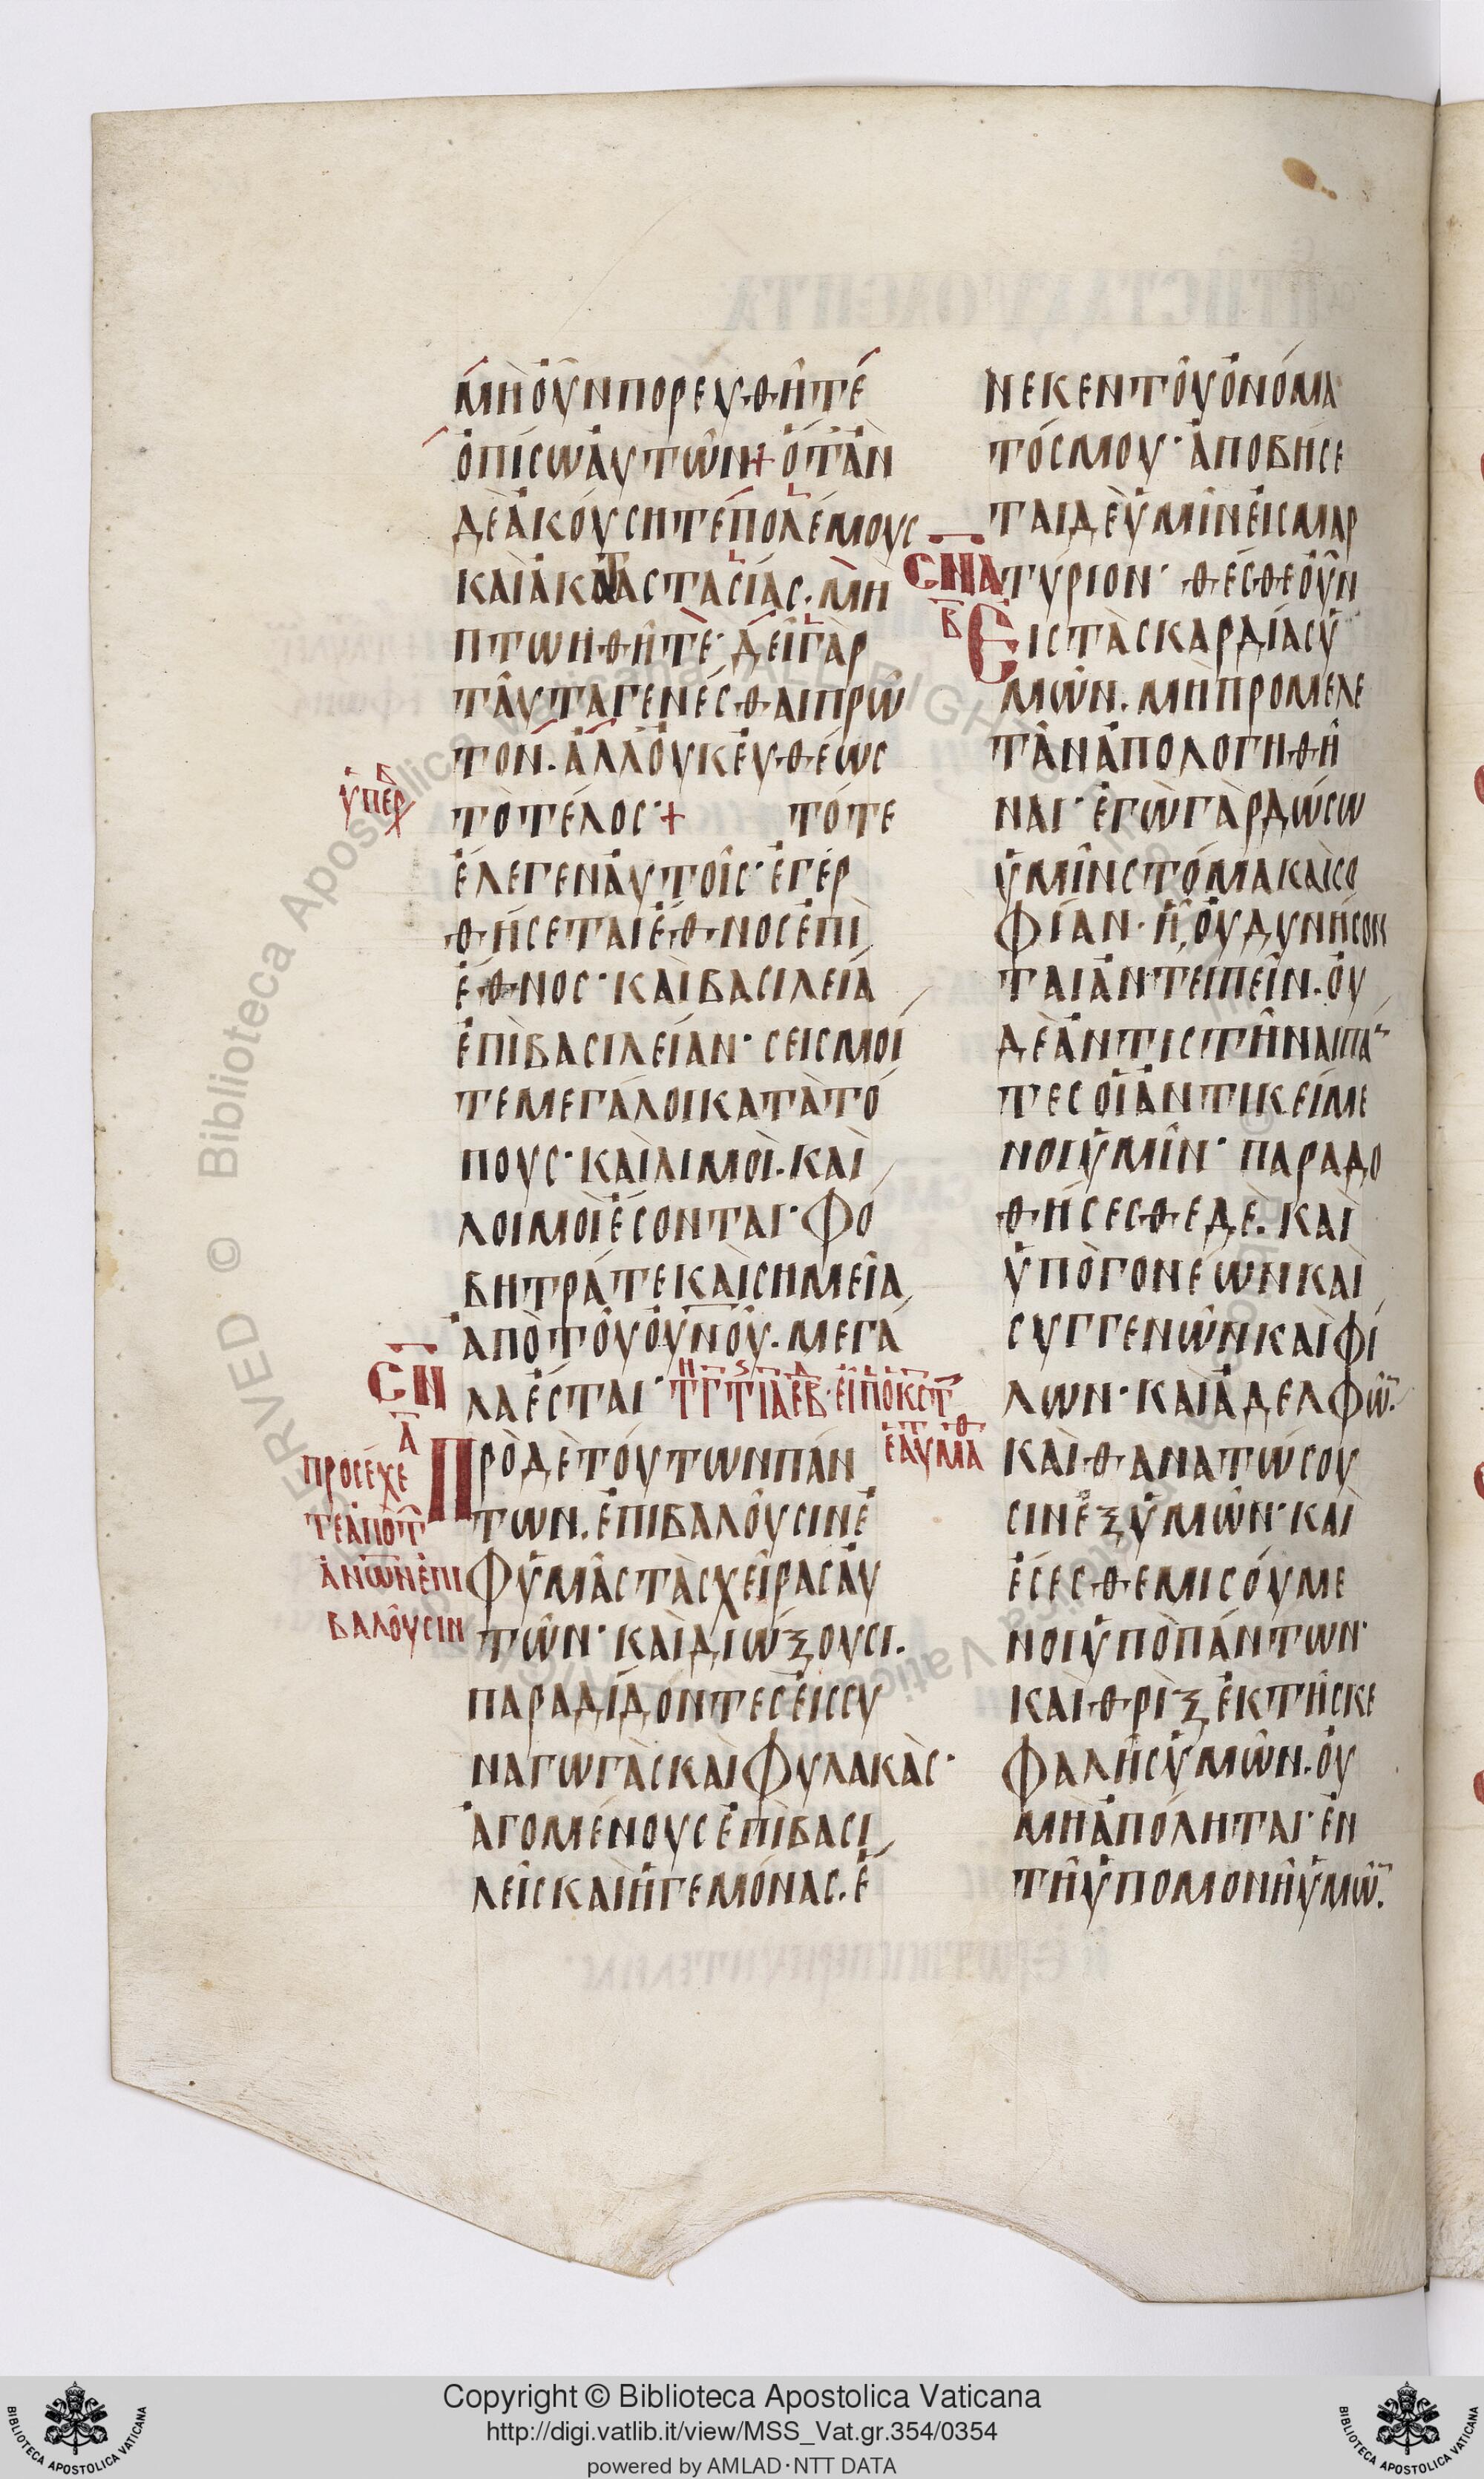 μὴ οὖν πορευθῆτε
ὀπίσω αὐτῶν + ὅταν
δὲ ἀκούσητε πολέμους
καὶ ἀκαταστασίας. μὴ
πτωηθῆτε· δεῖ γὰρ
ταῦτα γενέσθαι πρῶ
τον. ἀλλ οὐκ εὐθέως
ὑπερβ
τὸ τέλος· + τότε
ἔλεγεν αὐτοῖς· ἐγερ
θήσεται ἔθνος ἐπὶ
ἔθνος· καὶ βασιλεία
ἐπὶ βασιλείαν· σεισμοί
τε μεγάλοι κατὰ τό
πους· καὶ λιμοὶ. καὶ
λοιμοὶ ἔσονται· φό
βητρά τε καὶ σημεῖα
ἀπὸ τοῦ οὐνοῦ. μεγά
ΣΝ
λα ἔσται·
Α
προσέχε
τε ἀπὸ τ
ἀνων ἐπι
βαλοῦσιν
Πρὸ δὲ τούτων πάν
των. ἐπιβαλοῦσιν ἐ
φ ὑμᾶς τὰς χεῖρας αὐ
τῶν· καὶ διώξουσι.
παραδίδόντες εἰς συ
ναγωγὰς καὶ φυλακὰς·
ἀγομένους ἐπὶ βασι
λεῖς καὶ ἡγεμόνας. ἕ
νεκεν τοῦ ὀνόμα
τός μου· ἀποβήσε
ται δὲ ὑμῖν εἰς μαρ
ΣΝΑ
τύριον· θέσθε οὖν
Β
Εἰς τὰς καρδίας ὑ
μῶν. μὴ προμελε
τᾶν ἀπολογηθῆ
ναι· ἐγὼ γὰρ δώσω
ὑμῖν στόμα καὶ σο
φίαν· ᾗ οὐ δυνήσον
ται ἀντειπεῖν. οὐ
δὲ ἀντιστῆναι πάν
τες οἱ ἀντικείμε
νοι ὑμῖν· παραδο
θήσεσθε δὲ. καὶ
ὑπὸ γονέων καὶ
συγγενῶν καὶ φί
λων· καὶ ἀδελφῶν.
καὶ θανατώσου
σιν ἐξ ὑμῶν· καὶ
ἔσεσθε μισούμε
νοι ὑπὸ πάντων·
καὶ θρὶξ ἐκ τῆς κε
φαλῆς ὑμῶν. οὐ
μὴ ἀπόληται· ἐν
τῇ ὑπομονῇ ὑμῶν.
Copyright © Biblioteca Apostolica Vaticana
http://digi.vatlib.it/view/MSS_Vat.gr.354/0354
powered by AMLAD·NTT DATA
BIBLIOTECA APOSTOLICA VATICANA
BIBLIOTECA APOSTOLICA VATICANA